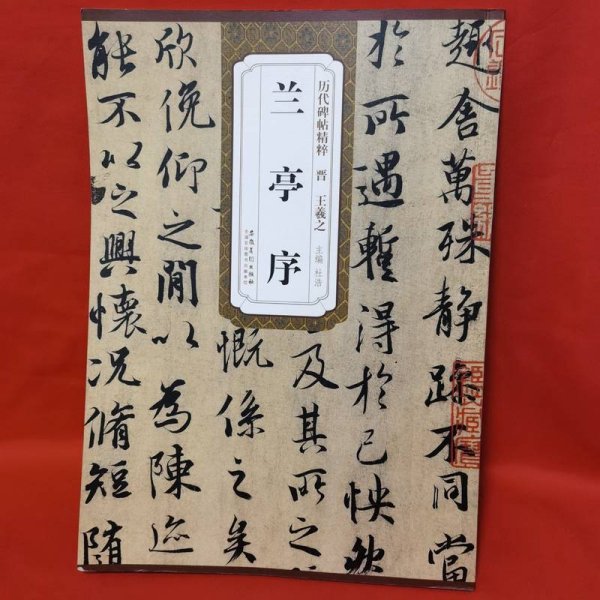 历代碑帖精粹 晋 王羲之
主编 杜浩
兰亭序
安徽美术出版社
趣舍萬殊静躁不同當
於所遇暫得於己怏然
及其所之
慨係之矣
欣俛仰之閒以為陳迹
能不以之興懷况脩短随